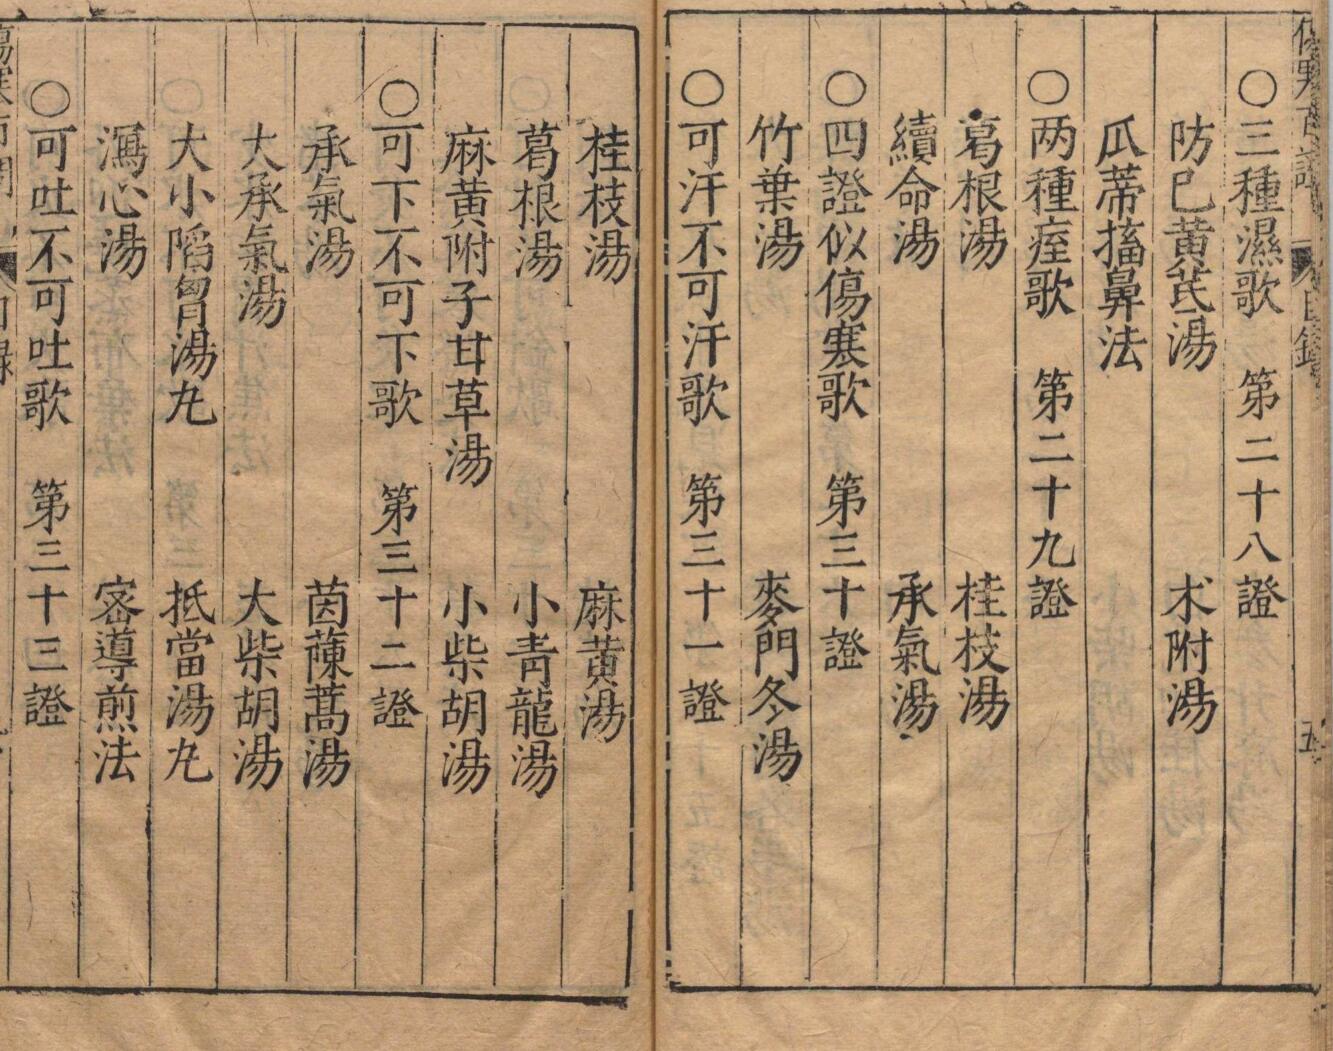 ○三種濕歌　第二十八證
防巳黄芪湯　术附湯
瓜蒂搐鼻法
○两種痓歌　第二十九證
葛根湯　桂枝湯
續命湯　承氣湯
○四證似傷寒歌　第三十證
竹葉湯　麥門冬湯
○可汗不可汗歌　第三十一證
桂枝湯　麻黄湯
葛根湯　小靑龍湯
麻黄附子甘草湯　小柴胡湯
○可下不可下歌　第三十二證
承氣湯　茵蔯蒿湯
大承氣湯　大柴胡湯
大小陷胷湯丸　抵當湯丸
瀉心湯　宻導煎法
○可吐不可吐歌　第三十三證